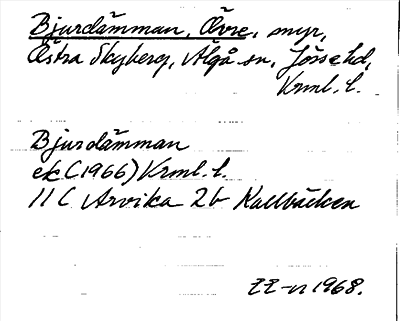 Bjurdämman, Övre, myr,
Östra Skyberg, Älgå sn, Jösse hd,
Vrml. l.
Bjurdämman
ek (1966) Vrml. l.
11 C Arvika 2b Kallbäcken
1968.